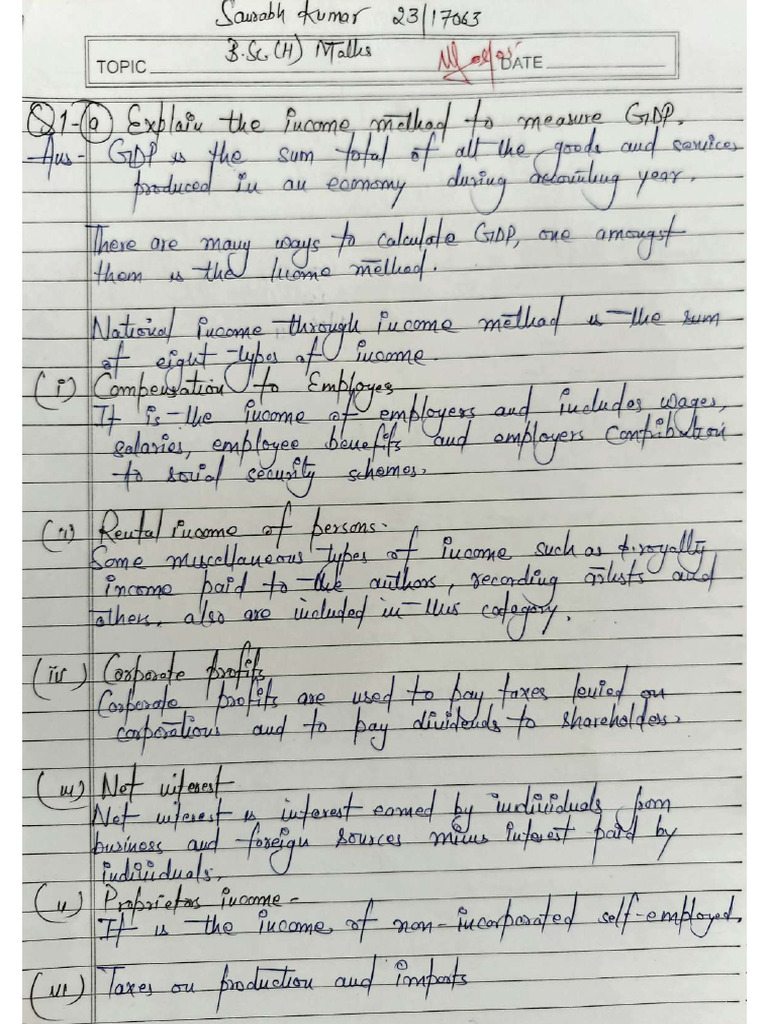 Saurabh Kumar 23/17063
B.Sc.(H) Maths
TOPIC DATE
Q1-(a) Explain the income method to measure GDP.
Ans- GDP is the sum total of all the goods and services
produced in an economy during accounting year.
There are many ways to calculate GDP, one amongst
them is the Income method.
National income through income method is the sum
of eight types of income.
(i) Compensation to Employes
It is the income of employers and includes wages,
salaries, employee benefits and employers contribution
to social security schemes.
(ii) Rental income of persons.
Some miscellaneous types of income such as royalty
income paid to the authors, recording artists and
others, also are included in this category.
(iii) Corporate profits
Corporate profits are used to pay taxes levied on
corporations and to pay dividends to shareholders.
(iv) Net interest
Net interest is interest earned by individuals from
business and foreign sources minus interest paid by
individuals.
(v) Proprietors income-
It is the income of non-incorporated self-employed.
(vi) Taxes on production and imports